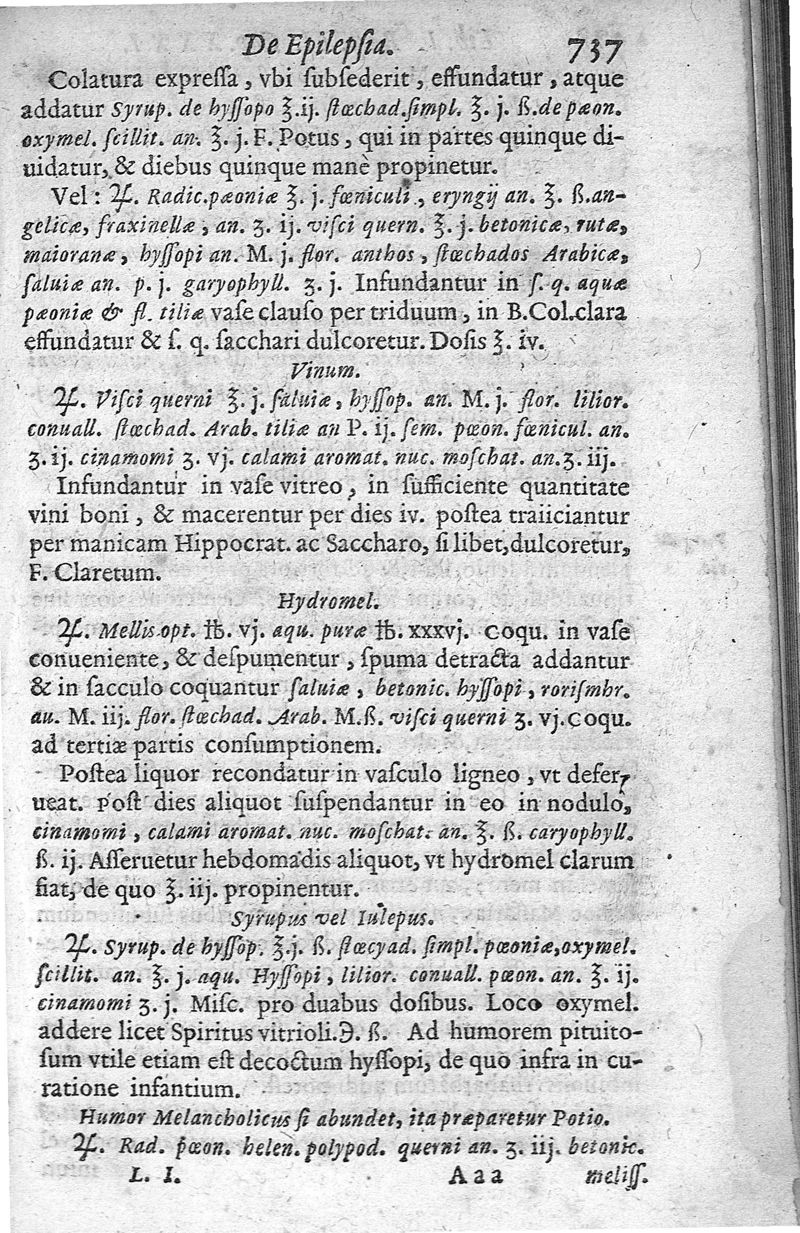 De Epilepſia. 737
Colatura expreſſa, vbi ſubſederit, effundatur, atque
addatur Syrup. de hyſſopo ℥.ij. ſtœchad. ſimpl. ℥. j. ß. de pæon.
oxymel. ſcillit. an. ℥. j. F. Potus, qui in partes quinque di-
uidatur, & diebus quinque manè propinetur.
Vel: ♃. Radic. pæoniæ ℥. j. fœniculi, eryngij an. ℥. ß. an-
gelicæ, fraxinellæ, an. ʒ. ij. viſci quern. ℥. j. betonicæ, rutæ,
maioranæ, hyſſopi an. M. j. flor. anthos, ſtœchados Arabicæ,
ſaluiæ an. p. j. garyophyll. ʒ. j. Infundantur in ſ. q. aquæ
pæoniæ & fl. tiliæ vaſe clauſo per triduum, in B. Col. clara
effundatur & ſ. q. ſacchari dulcoretur. Doſis ℥. iv.
Vinum.
♃. Viſci querni ℥. j. ſaluiæ, hyſſop. an. M. j. flor. lilior.
conuall. ſtœchad. Arab. tiliæ an P. ij. ſem. pæon. fœnicul. an.
ʒ. ij. cinamomi ʒ. vj. calami aromat. nuc. moſchat. an. ʒ. iij.
Infundantur in vaſe vitreo, in ſufficiente quantitate
vini boni, & macerentur per dies iv. poſtea traiiciantur
per manicam Hippocrat. ac Saccharo, ſi libet, dulcoretur,
F. Claretum.
Hydromel.
♃. Mellis opt. ℔. vj. aqu. puræ ℔. xxxvj. coqu. in vaſe
conueniente, & deſpumentur, ſpuma detracta addantur
& in ſacculo coquantur ſaluiæ, betonic. hyſſopi, roriſmhr.
au. M. iij. flor. ſtœchad. Arab. M. ß. viſci querni ʒ. vj. coqu.
ad tertiæ partis conſumptionem.
Poſtea liquor recondatur in vaſculo ligneo, vt defer-
ueat. Poſt dies aliquot ſuſpendantur in eo in nodulo,
cinamomi, calami aromat. nuc. moſchat. an. ℥. ß. caryophyll.
ß. ij. Aſſeruetur hebdomadis aliquot, vt hydromel clarum
fiat, de quo ℥. iij. propinentur.
Syrupus vel Iulepus.
♃. Syrup. de hyſſop. ℥. j. ß. ſtœcyad. ſimpl. pæoniæ, oxymel.
ſcillit. an. ℥. j. aqu. Hyſſopi, lilior. conuall. pæon. an. ℥. ij.
cinamomi ʒ. j. Miſc. pro duabus doſibus. Loco oxymel.
addere licet Spiritus vitrioli. ℈. ß. Ad humorem pituito-
ſum vtile etiam eſt decoctum hyſſopi, de quo infra in cu-
ratione infantium.
Humor Melancholicus ſi abundet, ita præparetur Potio.
♃. Rad. pæon. helen. polypod. querni an. ʒ. iij. betonic.
L. I. Aaa meliſſ.